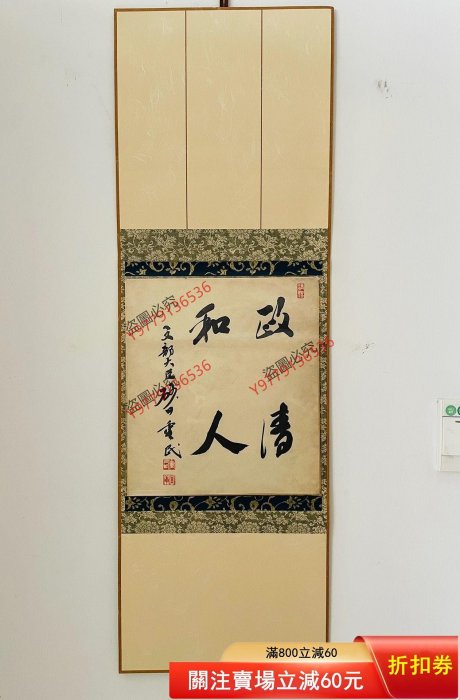 政清
和人
文部大臣砂田重民
盜圖必究
Y9779136536
盜圖必究
Y9779136536
盜圖必究
Y9779136536
滿800立減60
關注賣場立減60元
折扣券